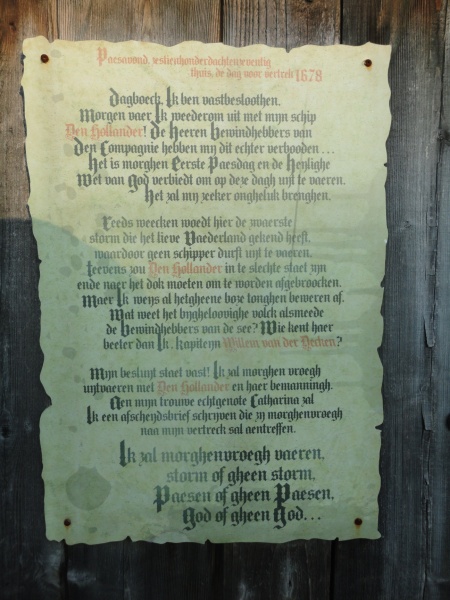 Paesavond, sestienhonderdachtenzeventig
thuis, de dag voor vertrek 1678
Dagboeck. Ik ben vastbesloothen.
Morgen vaer Ik weederom uit met mijn schip
Den Hollander! De Heeren Bewindhebbers van
Den Compagnie hebben mij dit echter verbooden...
Het is morghen Eerste Paesdag en de Heylighe
Wet van God verbiedt om op deze dagh uijt te vaeren.
Het zal mij zeeker ongheluk brenghen.
Reeds weecken woedt hier de zwaerste
storm die het lieve Vaederland gekend heeft,
waardoor geen schipper durft uijt te vaeren.
Teevens zou Den Hollander in te slechte staet zijn
ende naer het dok moeten om te worden afgebroocken.
Maer Ik weijs al hetgheene boze tonghen beweren af.
Wat weet het bijgheloovighe volck alsmeede
de Bewindhebbers van de see? Wie kent haer
beeter dan Ik, kapiteijn Willem van der Decken?
Mijn besluijt staet vast! Ik zal morghen vroegh
uijtvaeren met Den Hollander en haer bemanningh.
Aen mijn trouwe echtgenote Catharina zal
Ik een afscheijdsbrief schrijven die zij morghenvroegh
naa mijn vertreck sal aentreffen.
Ik zal morghenvroegh vaeren,
storm of gheen storm,
Paesen of gheen Paesen,
God of gheen God...